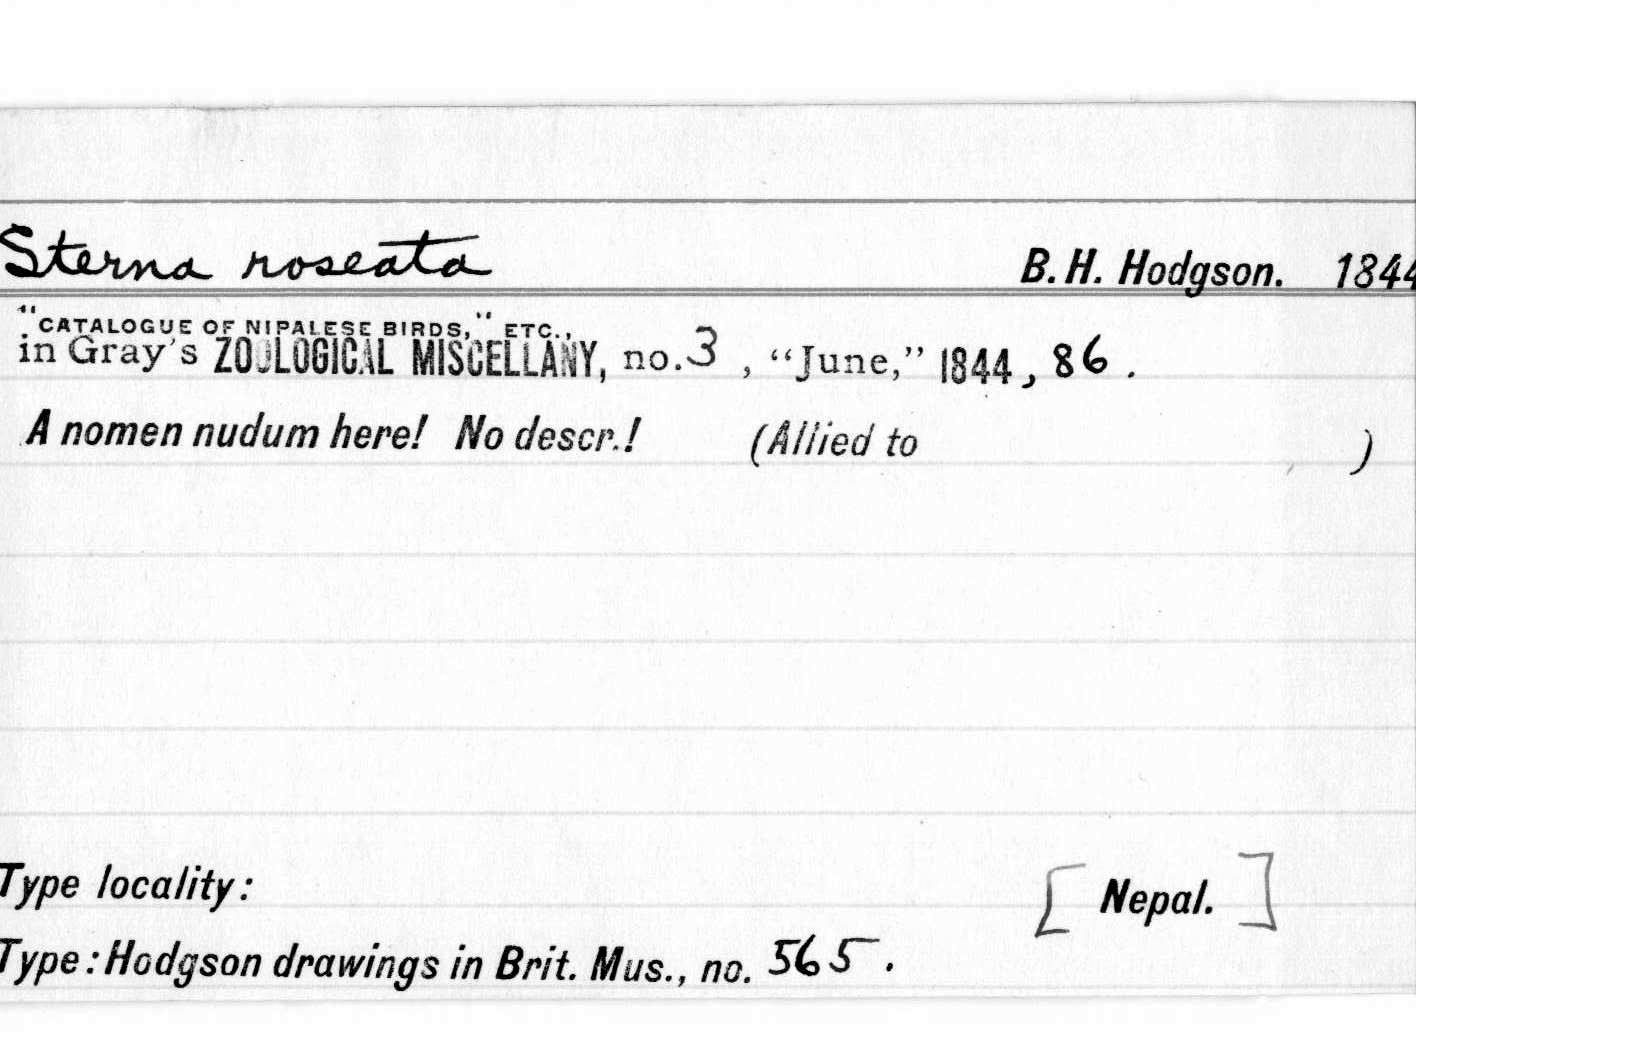 Sterna roseata B. H. Hodgson. 1844
"CATALOGUE OF NIPALESE BIRDS," ETC.,
in Gray's ZOOLOGICAL MISCELLANY, no. 3, "June," 1844, 86.
A nomen nudum here! No descr.! (Allied to )
Type locality: [Nepal.]
Type: Hodgson drawings in Brit. Mus., no. 565.